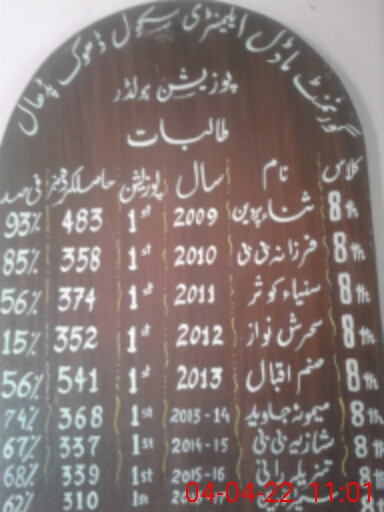 گورنمنٹ ماڈل ایلیمنٹری سکول ڈھوک پڈھال
پوزیشن ہولڈر
طالبات
کلاس نام سال پوزیشن حاصلکردہ نمبر فی صد
8th ثناء پروین 2009 1st 483 93%
8th فرزانہ بی بی 2010 1st 358 85%
8th سنیاء کوثر 2011 1st 374 56%
8th سحرش نواز 2012 1st 352 15%
8th صنم اقبال 2013 1st 541 56%
8th میمونہ جاوید 2013-14 1st 368 74%
8th شازیہ بی بی 2014-15 1st 337 67%
8th تنزیلہ رانی 2015-16 1st 339 68%
8th 1st 310 62%
04-04-22 11:01